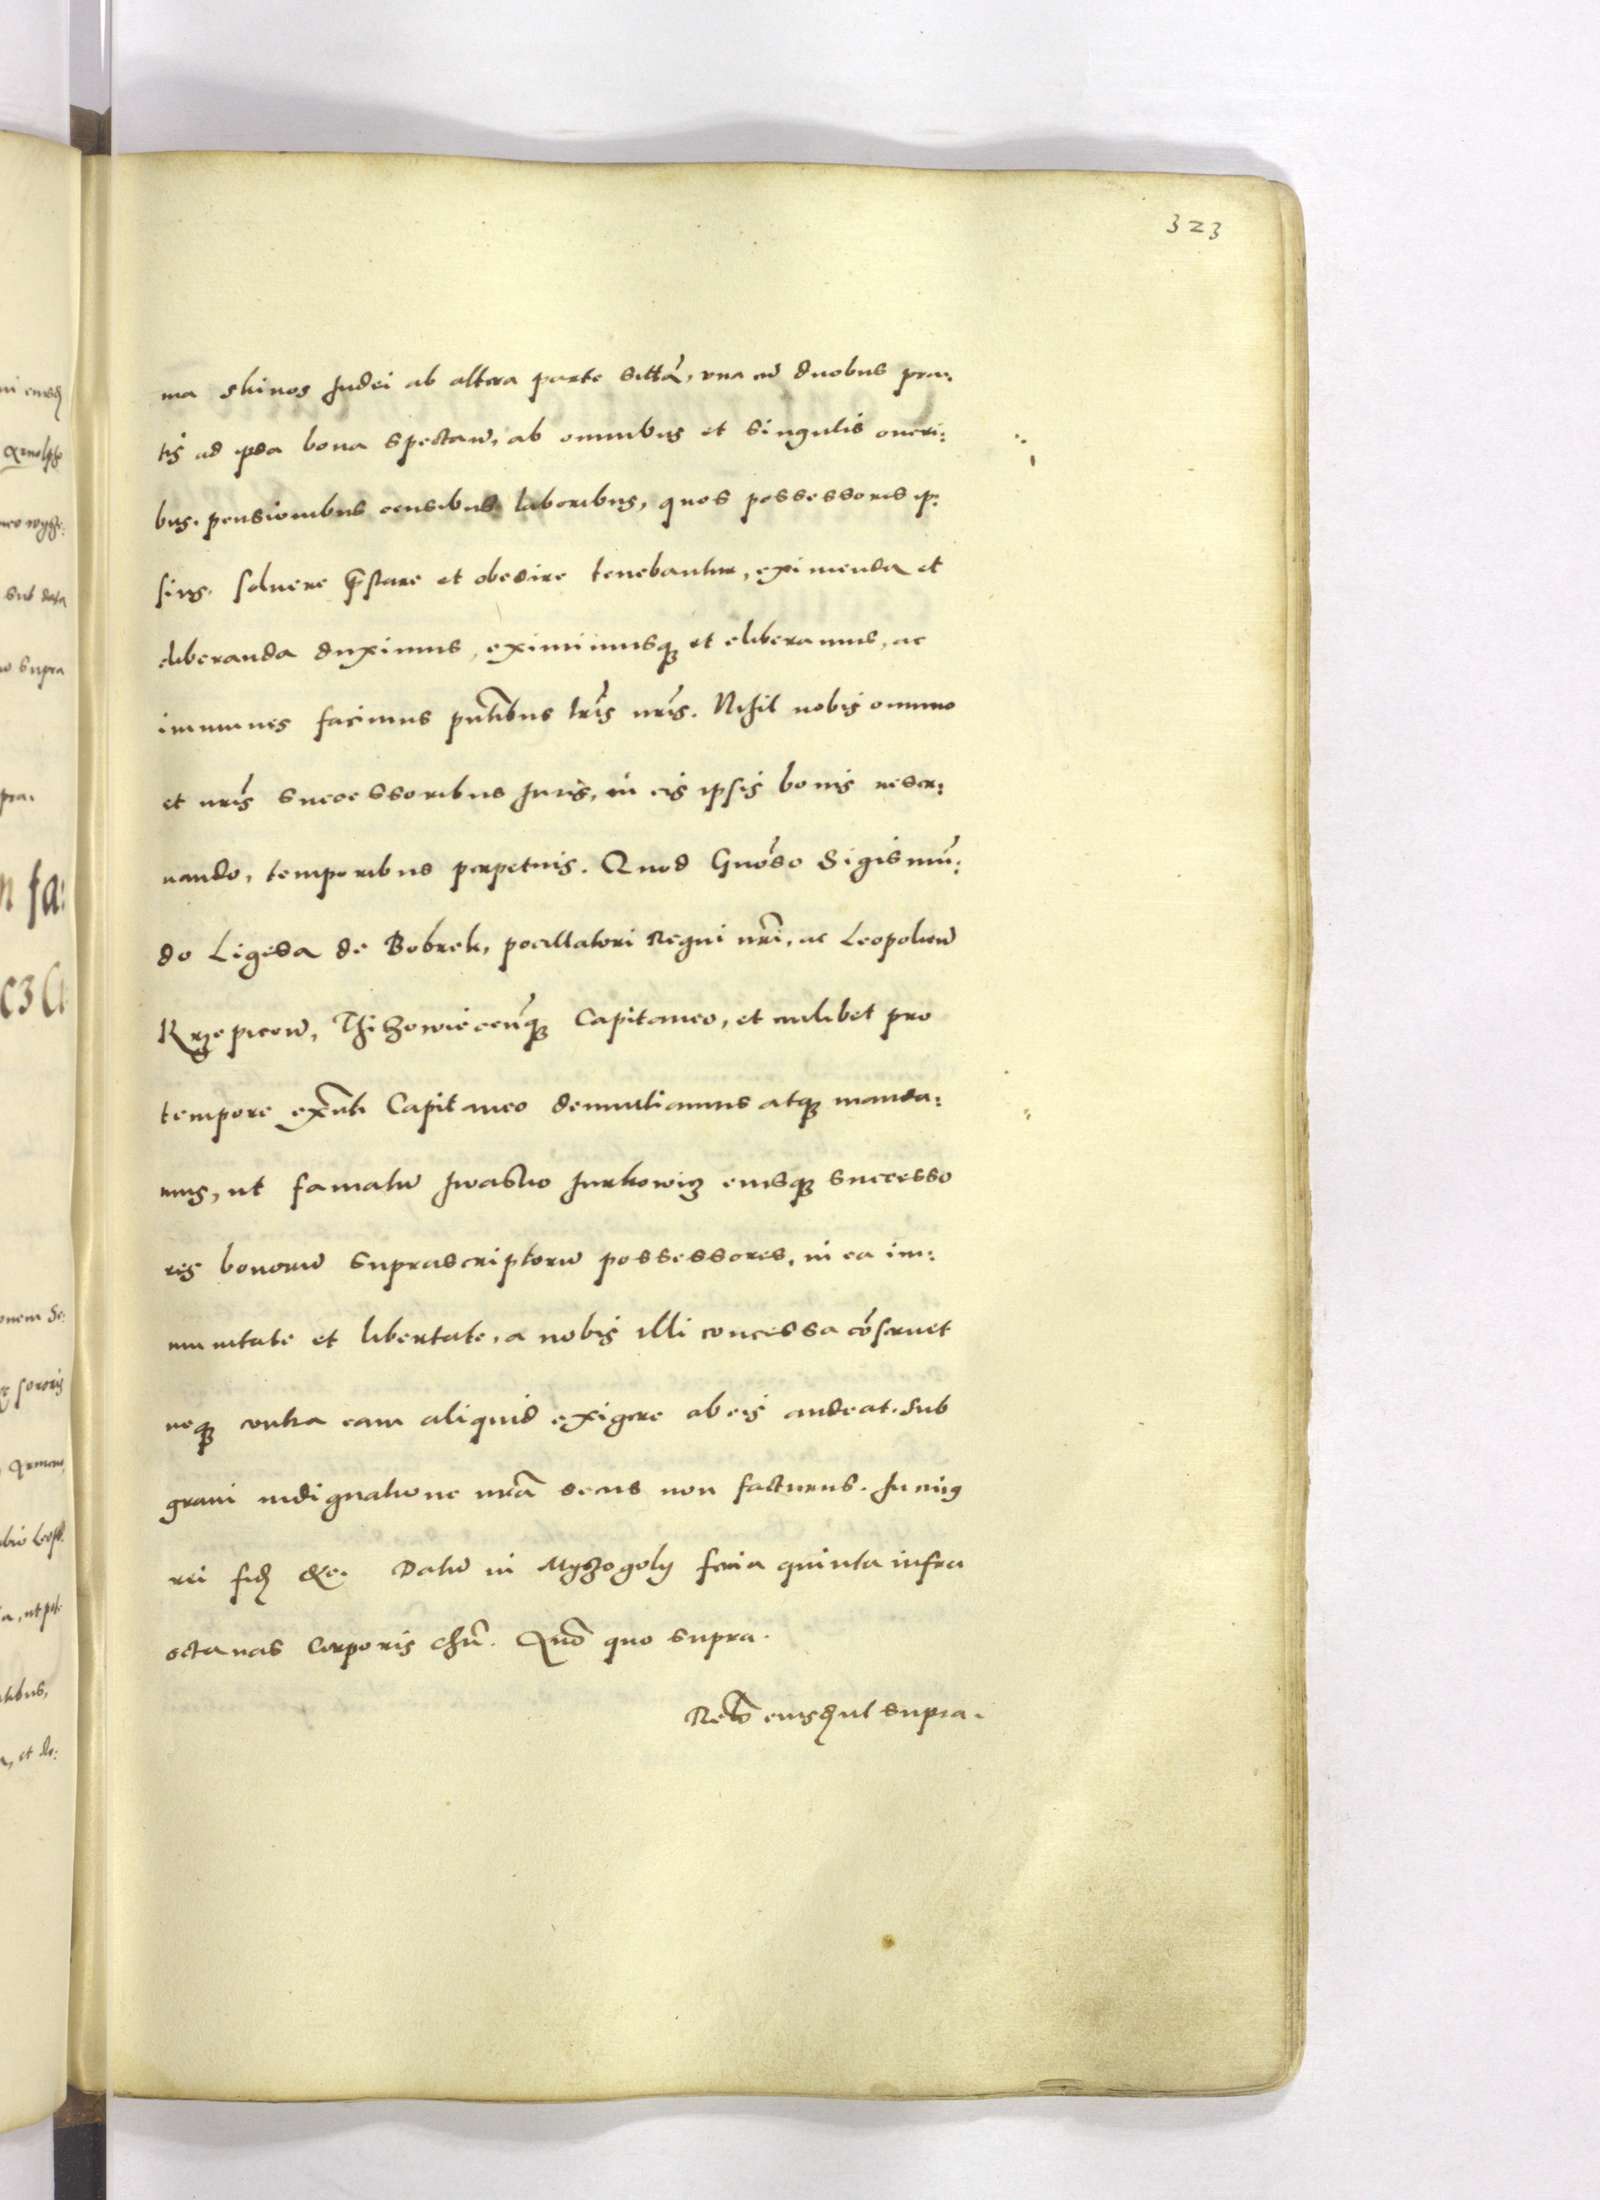 323
ma skinos Judei ab altera parte sittã, vna cũ duobus pra:
tis ad ipsa bona spectañ, ab omnibus et singulis oneri:
bus, pensionibus censibus laboribus, quos possessores ip:
sius, soluere p̃stare et obedire tenebantur, eximenda et
eliberanda duximus, eximimusq et eliberamus, ac
immunes facimus pñtibus lr̃is nr̃is. Nihil nobis omnino
et nr̃is successoribus Juris, in eis ipsis bonis reser:
uando, temporibus perpetuis. Quod Gnõso Sigismũ:
do Ligęsa de Bobrek, pocillatori Regni nr̃i, ac Leopolieñ
Krzepiceñ, capitaneo, et cuilibet pro
tempore ex̃nti Capitaneo denunciamus atq manda:
mus, ut famatũ Iwasko Jurkowicz eiusq successo
res bonorũ suprascriptorũ possessores, in ea im:
munitate et libertate, a nobis illi concessa cõseruet
neq contra eam aliquid exigere ab eis audeat. Sub
graui indignatione nr̃a secus non facturus. In cuius
rei fid &c. Datũ in feria quinta infra
octauas Corporis Chr̃i. Añõ quo supra.
Relõ eiusd ut supra.